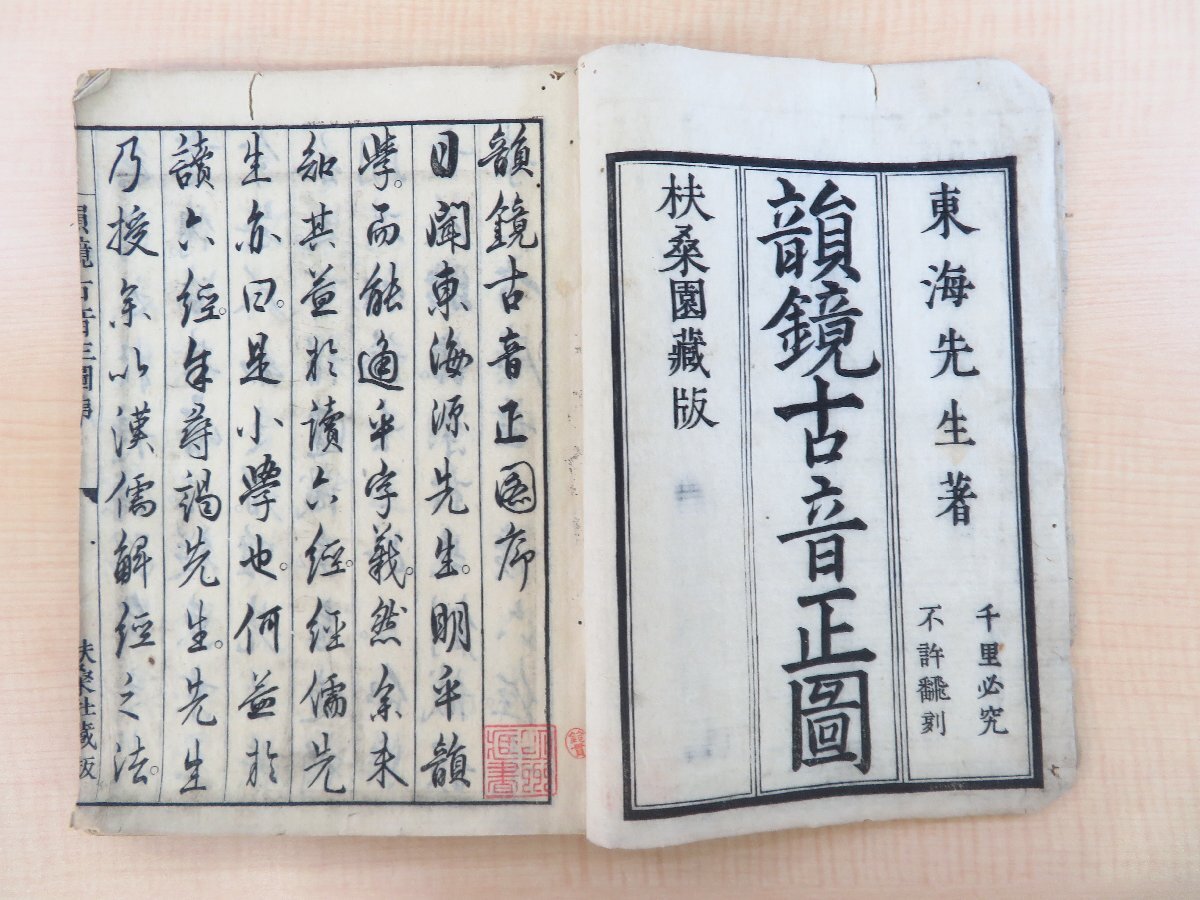 東海先生著
千里必究
不許翻刻
韻鏡古音正圖
扶桑園藏版
韻鏡古音正圖序
日聞東海源先生。明乎韻
學。而能通乎字義。然余未
知其益於讀六經。經儒先
生亦曰。是小學也。何益於
讀六經。年尋謁先生。先生
乃授余以漢儒解經之法。
韻鏡古音正圖序
扶桑社藏版